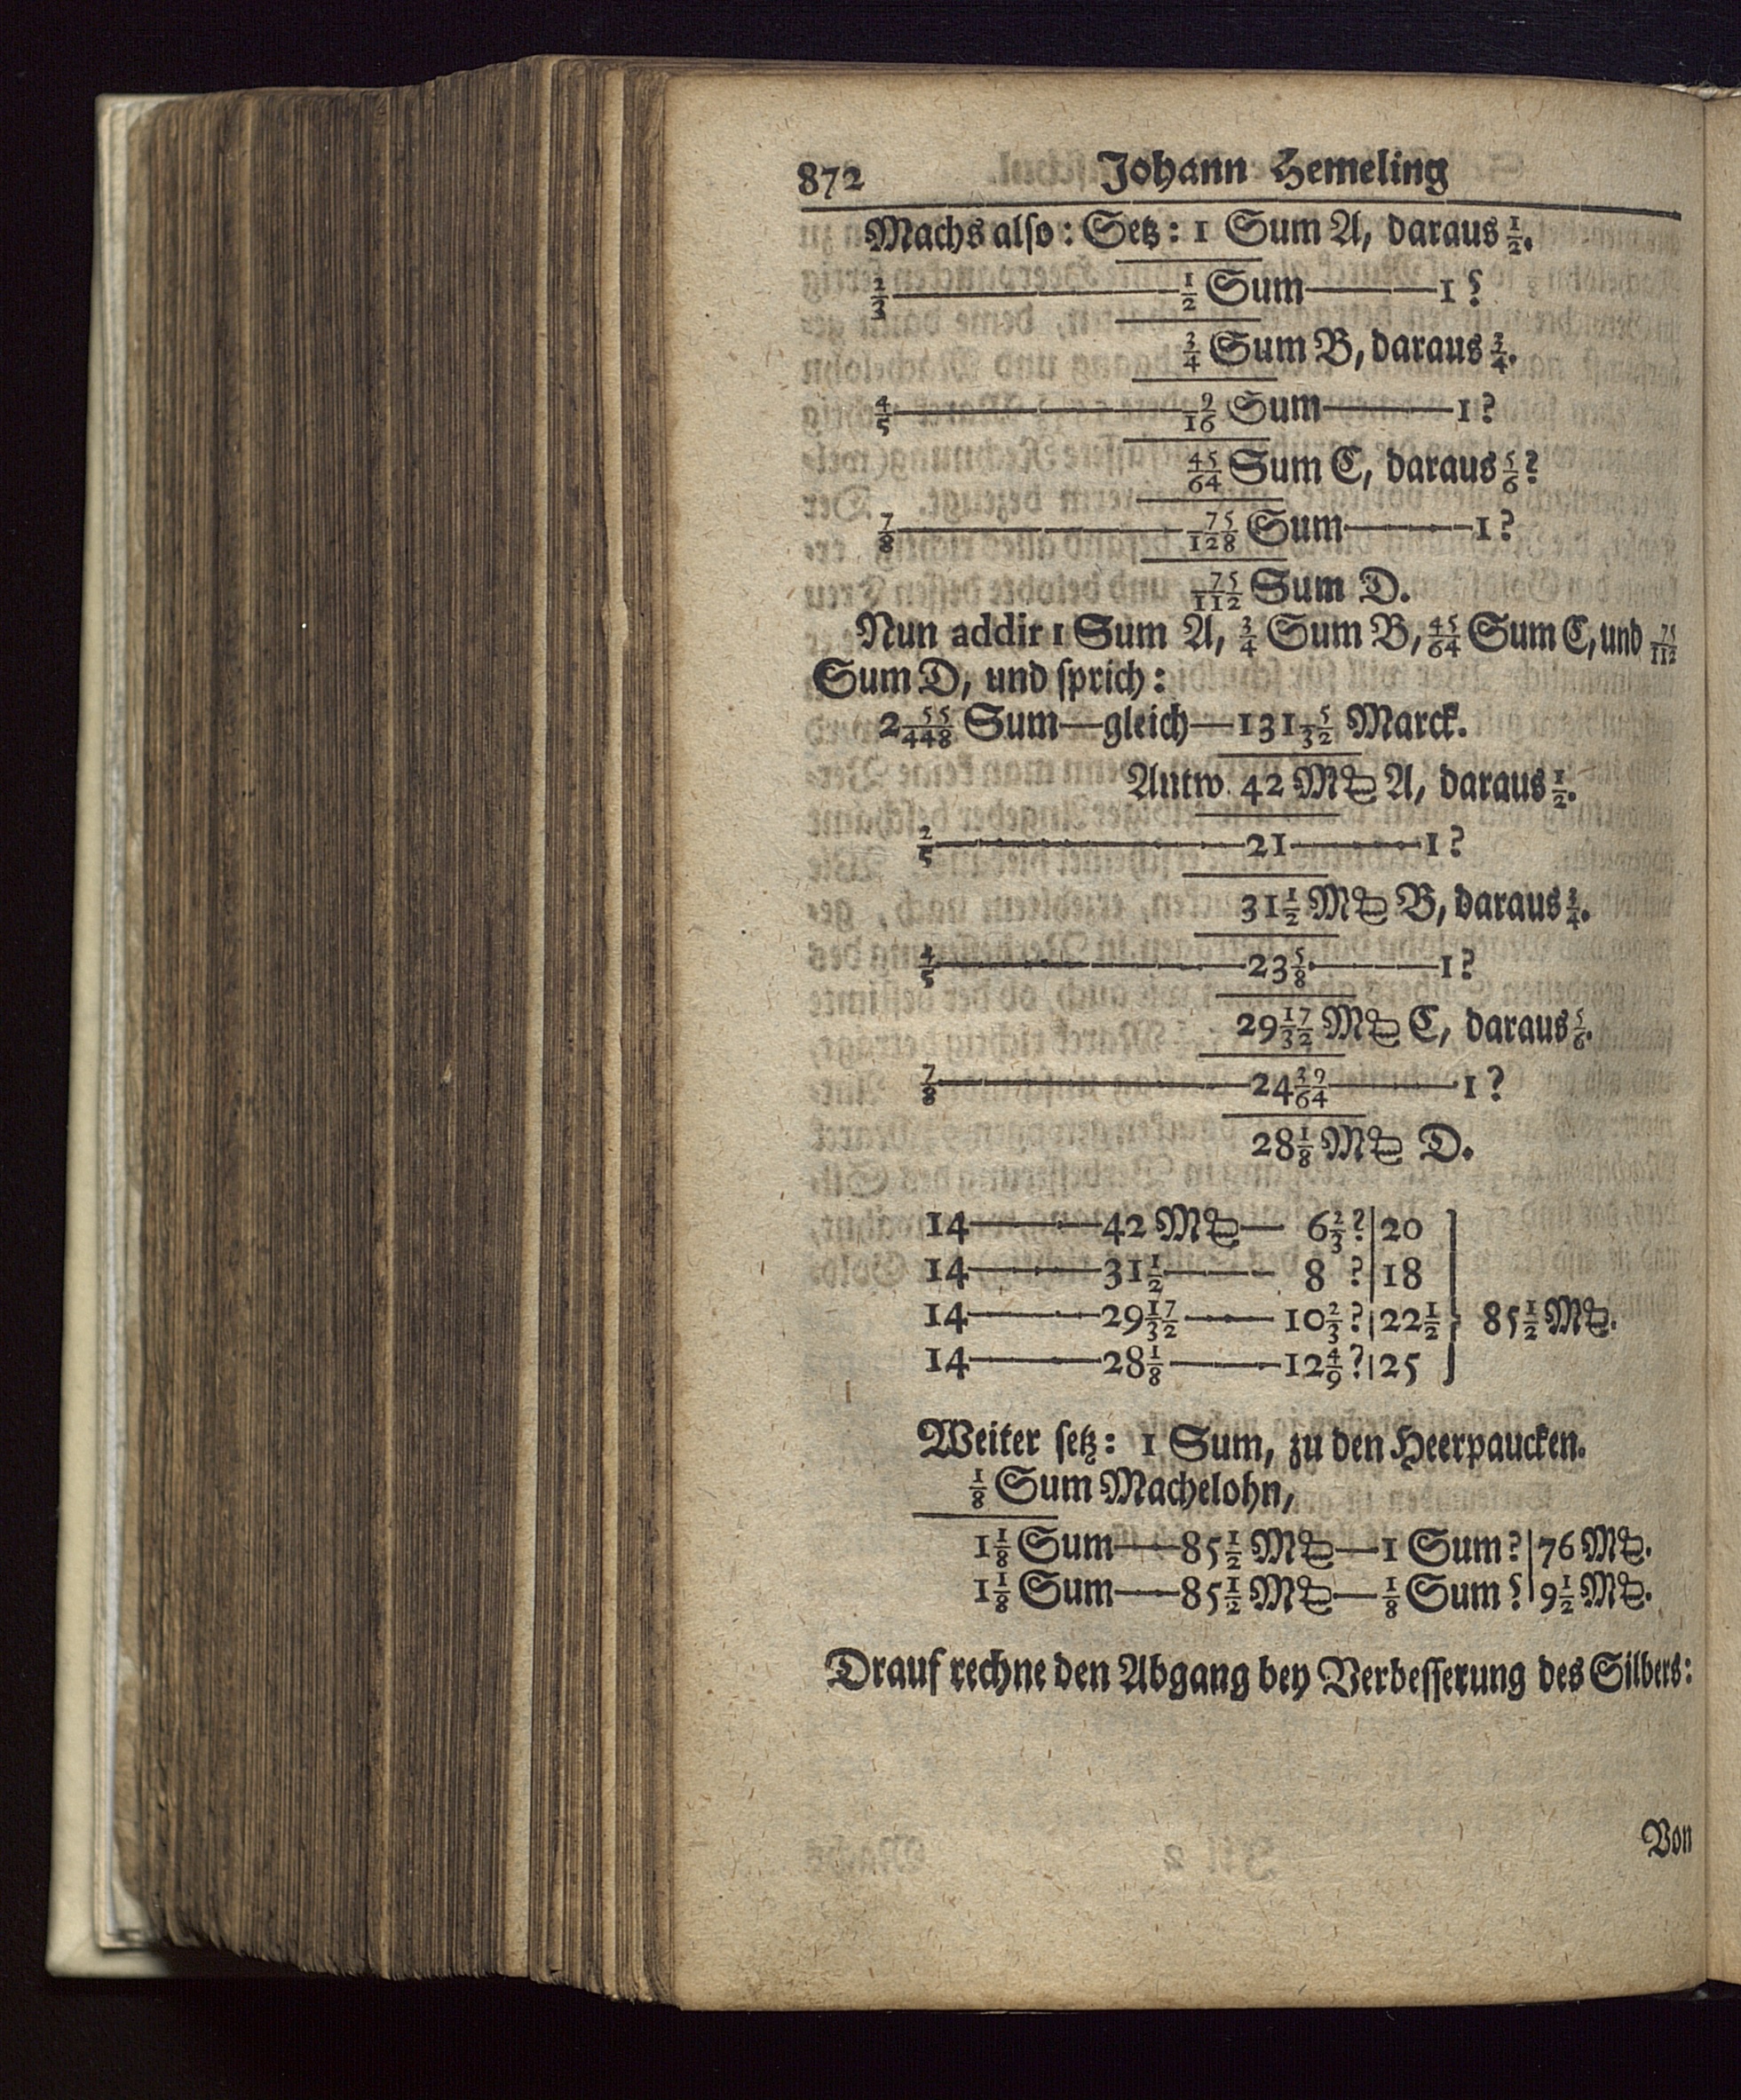 872 Johann Hemeling
Machs also: Setz: 1 Sum A, daraus 1/2.
2/3 — 1/2 Sum — 1?
3/4 Sum B, daraus 3/4.
4/5 — 9/16 Sum — 1?
45/64 Sum C, daraus 5/6?
7/8 — 75/128 Sum — 1?
75/112 Sum D.
Nun addir 1 Sum A, 3/4 Sum B, 45/64 Sum C, und 75/112
Sum D, und sprich:
2 55/448 Sum—gleich—131 5/32 Marck.
Antw. 42 M℔ A, daraus 1/2.
2/5 — 21 — 1?
31 1/2 M℔ B, daraus 3/4.
4/5 — 23 5/8 — 1?
29 17/32 M℔ C, daraus 5/6.
7/8 — 24 39/64 — 1?
28 1/8 M℔ D.
14 — 42 M℔ — 6 2/3? | 20
14 — 31 1/2 — 8 ? | 18
14 — 29 17/32 — 10 2/3? | 22 1/2 } 85 1/2 M℔.
14 — 28 1/8 — 12 4/9? | 25
Weiter setz: 1 Sum, zu den Heerpaucken.
1/8 Sum Machelohn,
1 1/8 Sum — 85 1/2 M℔ — 1 Sum? | 76 M℔.
1 1/8 Sum — 85 1/2 M℔ — 1/8 Sum? | 9 1/2 M℔.
Drauf rechne den Abgang bey Verbesserung des Silbers:
Von